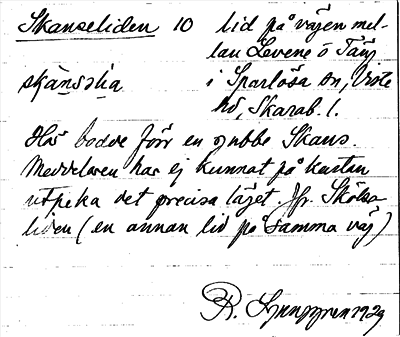 Skanseliden 10 lid på vägen mel-
lan Levene o Täng
skánslia i Sparlösa sn, Viste
hd, Skarab. l.
Här bodde förr en gubbe Skans.
Meddelaren har ej kunnat på kartan
utpeka det precisa läget. Jfr.
liden (en annan lid på samma väg)
R. Ljunggren 1929